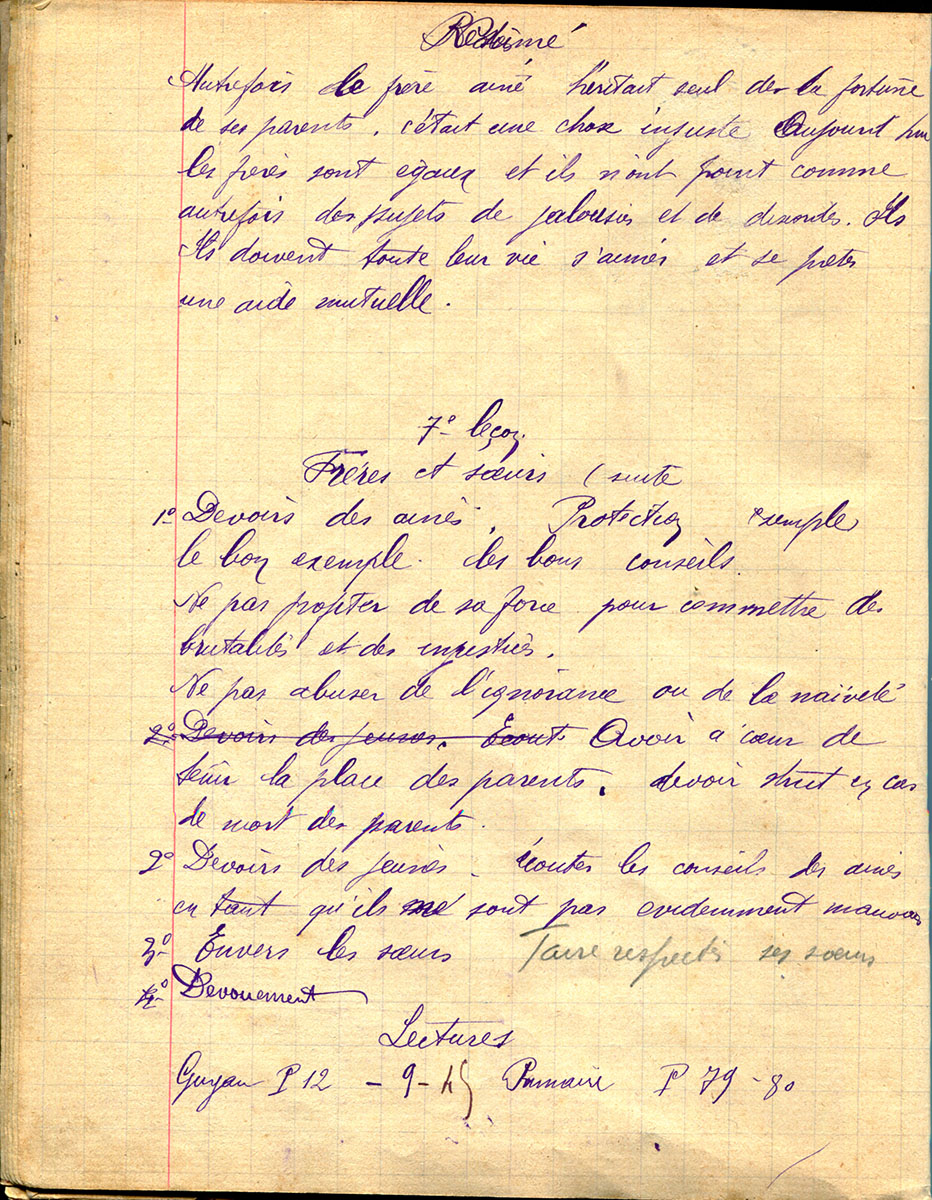 Résumé
Autrefois le frère ainé héritait seul de la fortune
de ses parents. c'était une chose injuste Aujourd'hui
les frères sont égaux et ils n'ont point comme
autrefois des sujets de jalousies et de discordes. Ils
Ils doivent toute leur vie s'aimer et se preter
une aide mutuelle.
7e leçon
Frères et sœurs (suite
1o Devoirs des ainés. Protection exemple
le bon exemple. les bons conseils.
Ne pas profiter de sa force pour commettre des
brutalités et des injustices.
Ne pas abuser de l'ignorance ou de la naïveté
2o Devoirs des jeunes. Ecout Avoir à cœur de
tenir la place des parents. devoir strict en cas
de mort des parents.
2o Devoirs des jeunes. écouter les conseils des ainés
en tant qu'ils ne sont pas evidemment mauvais
3o Envers les sœurs Faire respecter ses sœurs
4o Devouement
Lectures
Guyau P 12 - 9 - 45 Primaire P 79 - 80